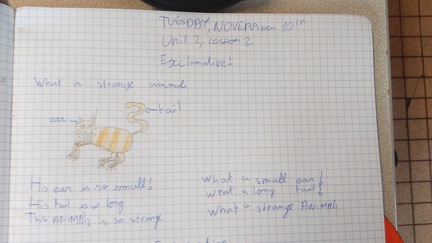 TUESDAY, NOVEMBER 10TH
Unit 2, lesson 2
Exclamative!
What a strange animal
tail
ear
His ear is so small!
His tail is so long
This ANIMAL is so strange
What a small ear!
what a long tail!
What a strange ANIMAL